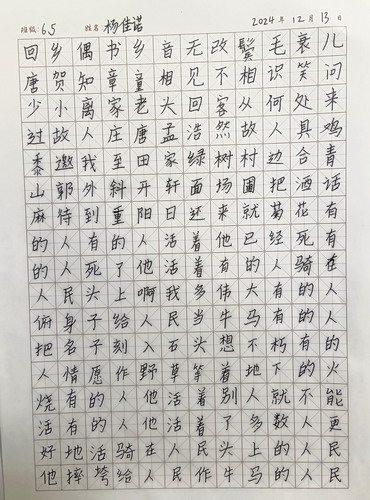 班级: 6.5 姓名: 杨佳诺 2024年12月13日
回乡偶书乡音无改鬓毛衰儿
唐贺知章童相见不相识笑问
少小离家老大回客从何处来
过故人庄唐孟浩然故人具鸡
黍邀我至田家绿树村边合青
山郭外斜开轩面场圃把酒话
麻待到重阳日还来就菊花有
的人有的人活着他已经死有
的人死了他活着有的人骑在
人民头上啊我多伟大有的人
俯身子给人民当牛马有的人
把名子刻入石头想不朽有的
人情愿作野草等着地下的火
烧有的人他活着别人就不能
活有的人他活着了多数人更
好地活骑在人民头上的人民
他摔垮给人民作牛马的人民